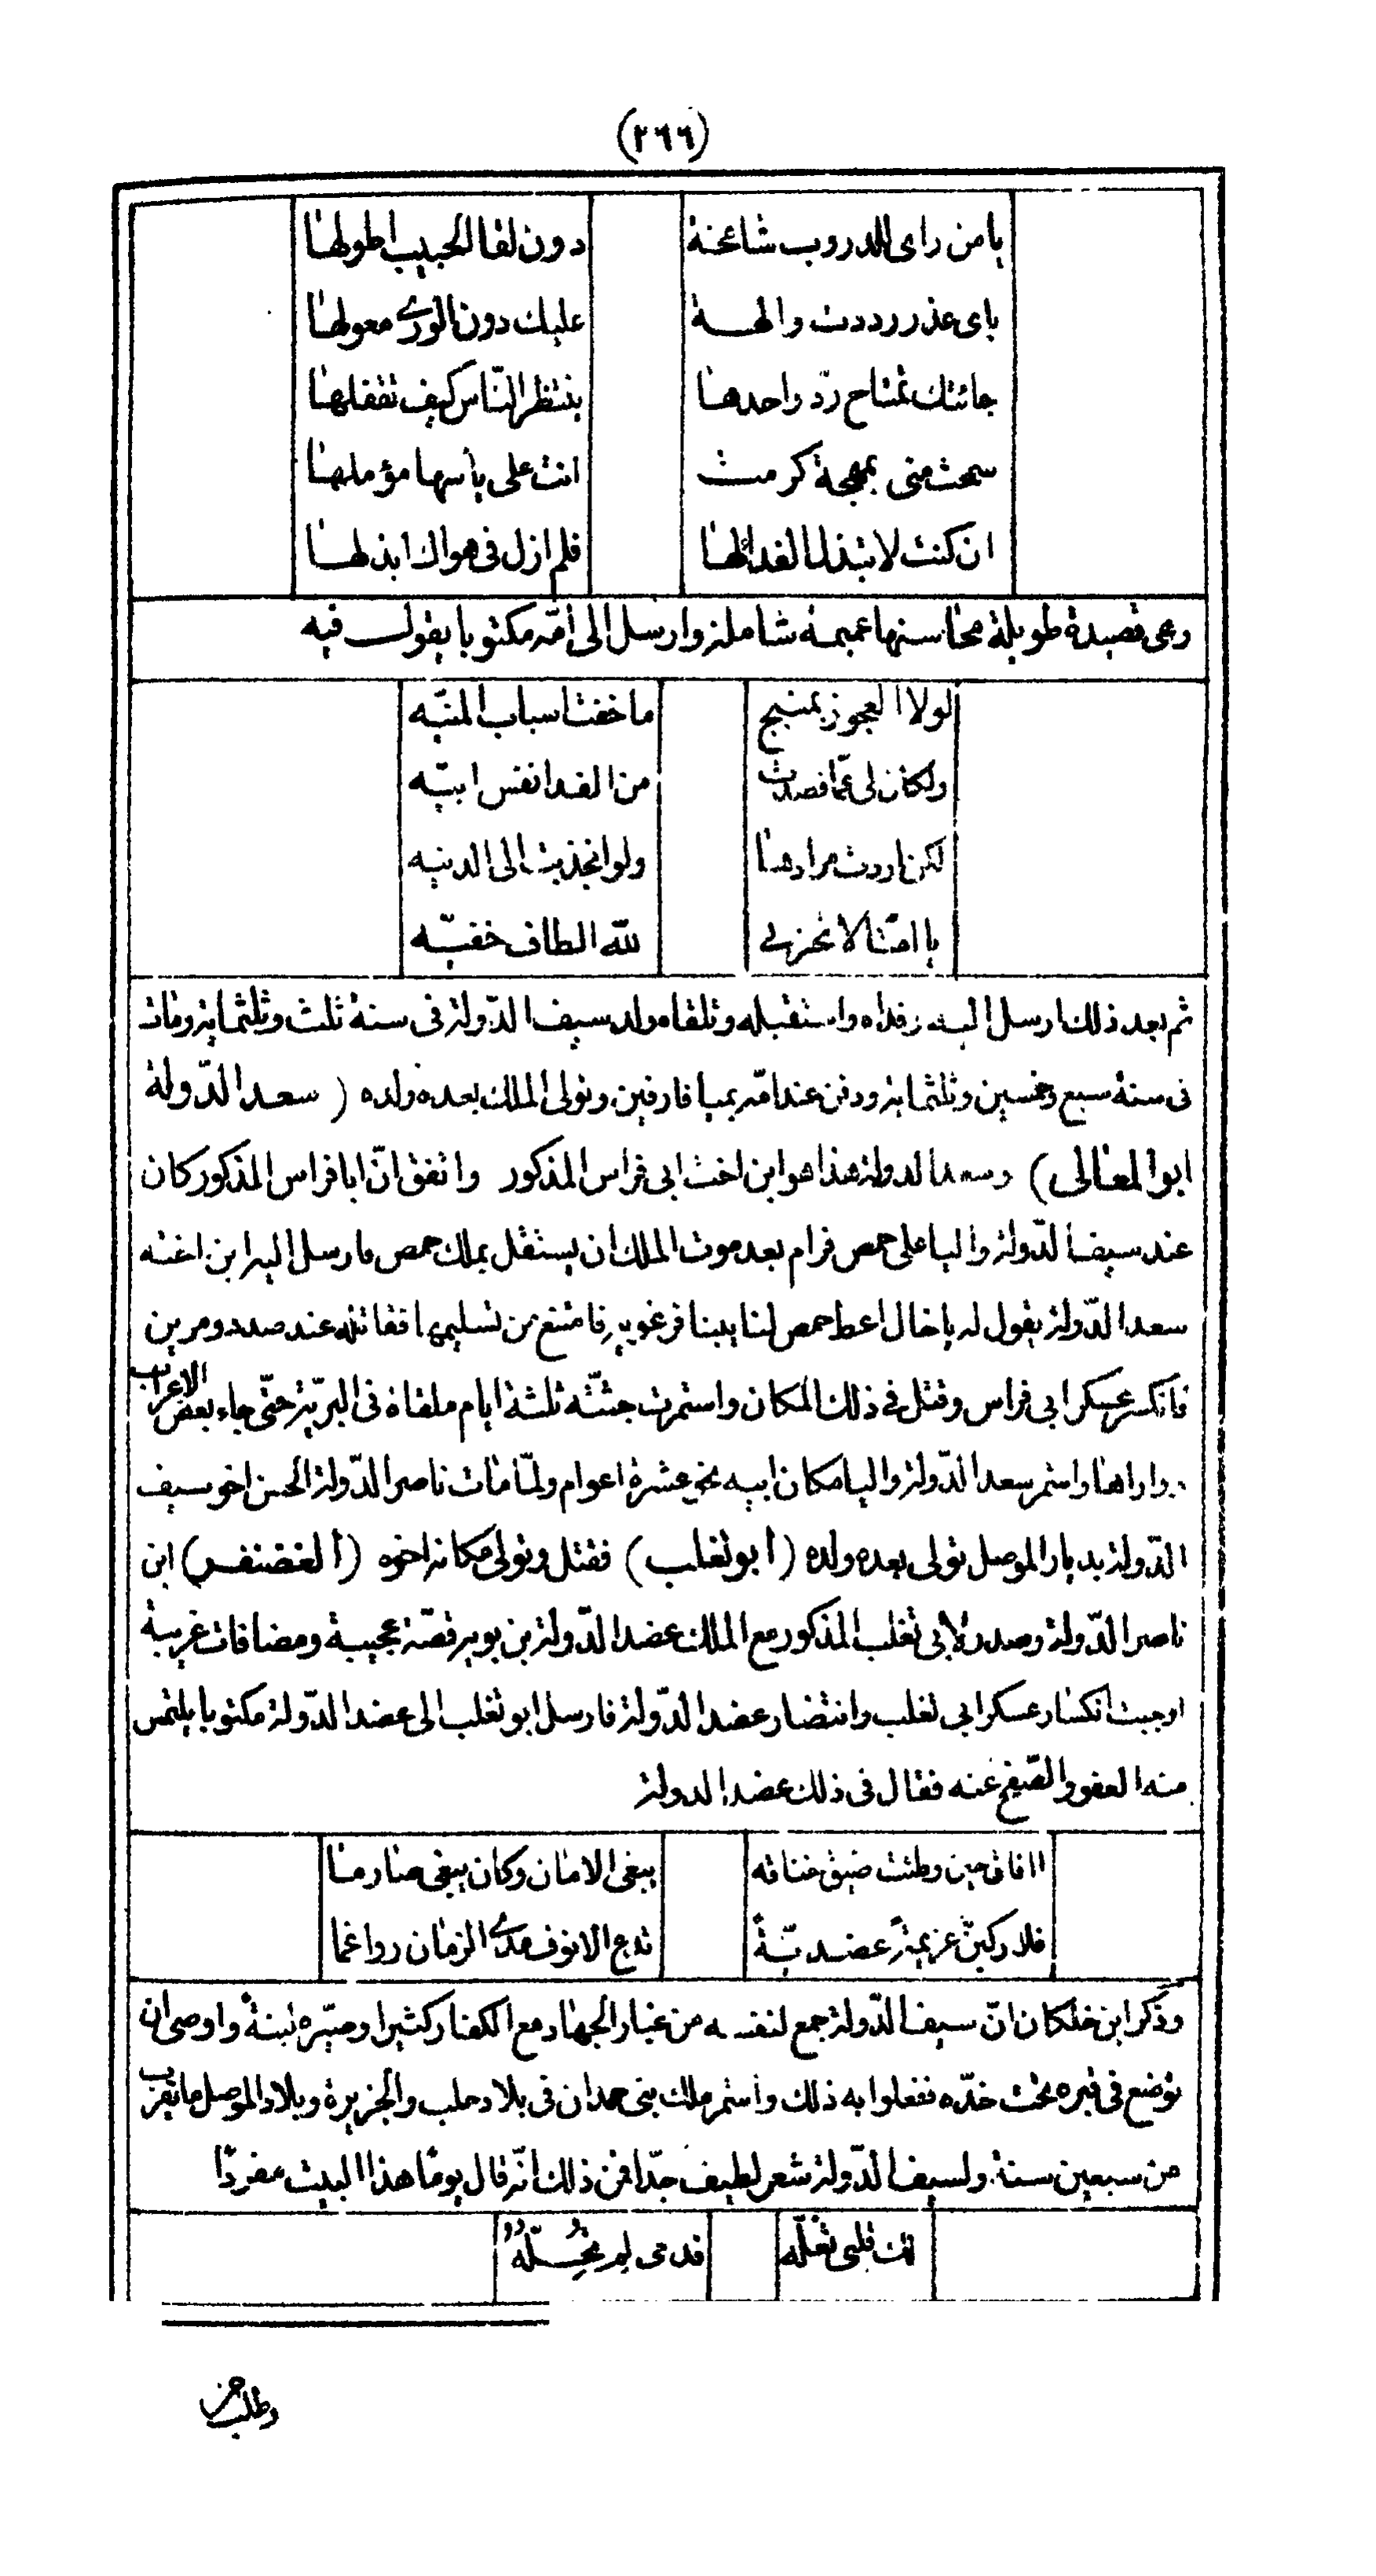 (٢٦٦)
يا من راى للدروب شامخة دون لقا الحبيب اطولها
باى عذر رددت والهة عليك دون الورى معولها
جائتك تمتاح ردّ واحدها ينتظر النّاس كيف تقفلها
سمحت منى بمهجة كرمت انت على يأسها مؤملها
ان كنت لا تبذل الفدا لها فلم ازل فى هواك ابذلها
وهى قصيدة طويلة محاسنها عميمة شاملة وارسل الى امّه مكتوبا يقول فيه
لولا العجوز بمنبج ما خفت اسباب المنيّه
ولكان لى عمّا قصدت من الفدا نفس ابيّه
لكن اردت مرادها ولو انجذبت الى الدنيه
يا امّتا لا تحزنى للّه الطاف خفيّه
ثم بعد ذلك ارسل اليه وفداه واستقبله وتلقاه ولد سيف الدّولة فى سنة ثلث وثلثماية ومات
فى سنة سبع وخمسين وثلثماية ودفن عند امّه بميافارقين وتولى الملك بعده ولده (سعد الدّولة
ابو المعالى) وسعد الدولة هذا هو ابن اخت ابى فراس المذكور واتفق انّ ابا فراس المذكور كان
عند سيف الدّولة واليا على حمص فرام بعد موت الملك ان يستقل بملك حمص فارسل اليه ابن اخته
سعد الدّولة يقول له يا خال اعط حمص لنايبنا فرغويه فامتنع من تسليمها فقاتله عند صدد ومرين
فانكسر عسكر ابى فراس وقتل فى ذلك المكان واستمرت جثتّه ثلثة ايام ملقاة فى البريّة حتّى جاء بعض الاعراب
وواراها واستمر سعد الدّولة واليا مكان ابيه نحو عشرة اعوام ولمّا مات ناصر الدّولة الحسن اخو سيف
الدّولة بديار الموصل تولى بعده ولده (ابو تغلب) فقتل وتولى مكانه اخوه (الغضنفر) ابن
ناصر الدّولة وصدر لابى تغلب المذكور مع الملك عضد الدّولة بن بويه قصّة عجيبة ومضافات غريبة
اوجبت انكسار عسكر ابى تغلب وانتصار عضد الدّولة فارسل ابو تغلب الى عضد الدّولة مكتوبا يلتمس
منه العفو والصّفح عنه فقال فى ذلك عضد الدولة
اافاق حين وطئت ضيق خناقه يبغى الامان وكان يبغى صارما
فلاركبنّ عزيمة عضديّةً تدع الانوف مدى الزمان رواغما
وذكر ابن خلكان انّ سيف الدّولة جمع لنفسه من غبار الجهاد مع الكفار كثيرا وصيّره لبنةً واوصى ان
توضع فى قبره تحت خدّه ففعلوا به ذلك واستمر ملك بنى حمدان فى بلاد حلب والجزيرة وبلاد الموصل ما يقرب
من سبعين سنة ولسيف الدّولة شعر لطيف جدّا فمن ذلك انّه قال يومًا هذا البيت مفردًا
لك قلبى تعلّه فدمى لم تحلّه
وطلب من